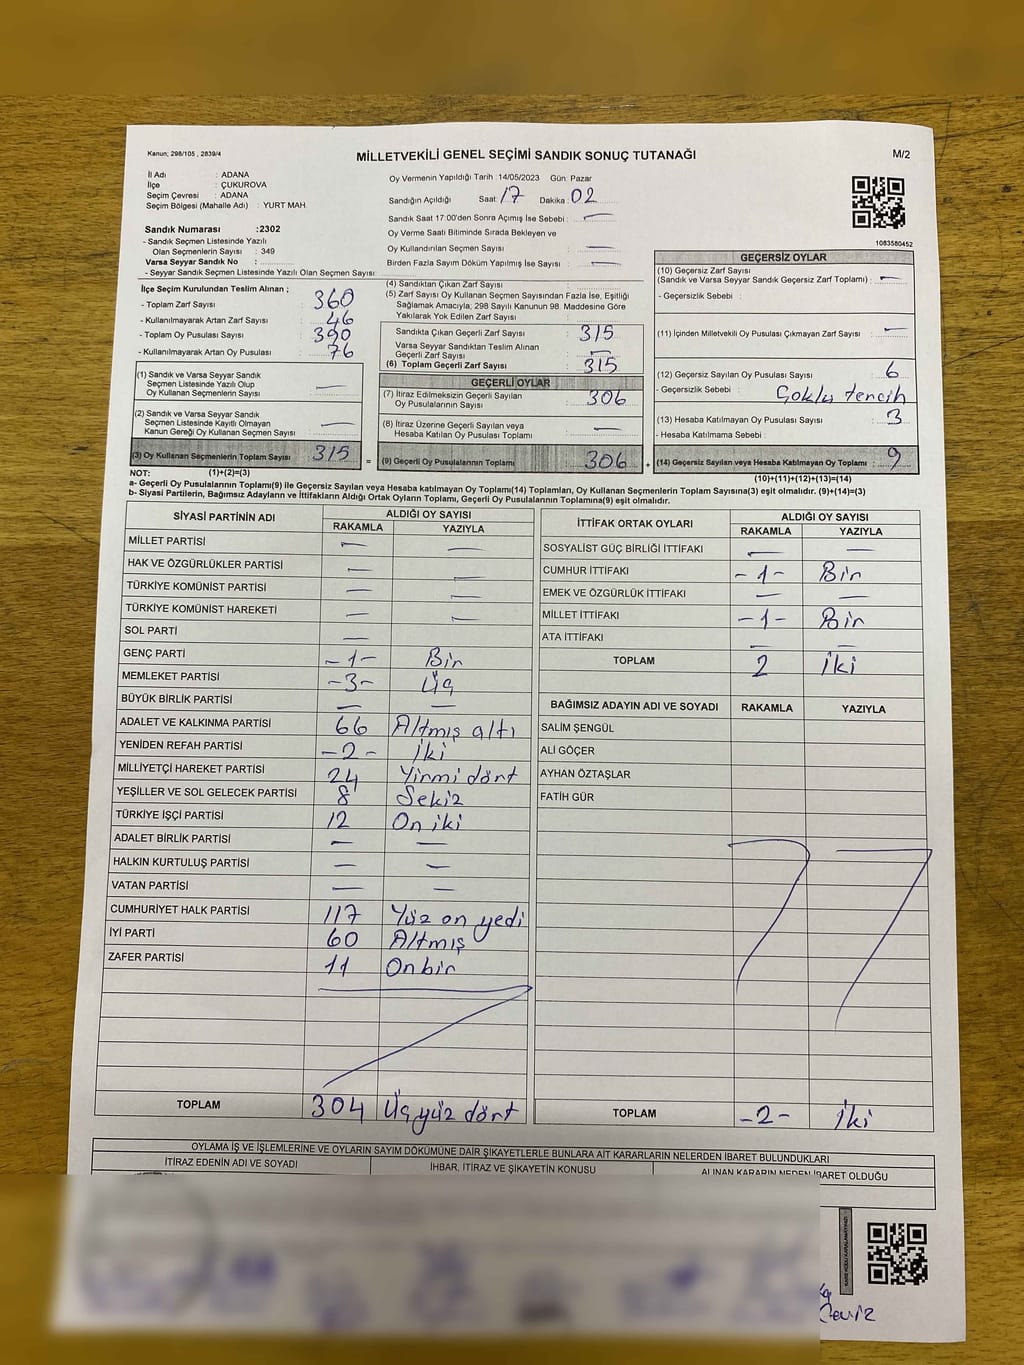 Kanun; 298/105 , 2839/4
MİLLETVEKİLİ GENEL SEÇİMİ SANDIK SONUÇ TUTANAĞI
M/2
İl Adı : ADANA
İlçe : ÇUKUROVA
Seçim Çevresi : ADANA
Seçim Bölgesi (Mahalle Adı) : YURT MAH.
Sandık Numarası :2302
- Sandık Seçmen Listesinde Yazılı
Olan Seçmenlerin Sayısı : 349
Varsa Seyyar Sandık No :
- Seyyar Sandık Seçmen Listesinde Yazılı Olan Seçmen Sayısı:
Oy Vermenin Yapıldığı Tarih :14/05/2023 Gün: Pazar
Sandığın Açıldığı Saat: 17 Dakika: 02
Sandık Saat 17:00'den Sonra Açımış İse Sebebi : —
Oy Verme Saati Bitiminde Sırada Bekleyen ve
Oy Kullandırılan Seçmen Sayısı : —
Birden Fazla Sayım Döküm Yapılmış İse Sayısı : —
1083580452
İlçe Seçim Kurulundan Teslim Alınan ;
- Toplam Zarf Sayısı : 360
- Kullanılmayarak Artan Zarf Sayısı : 46
- Toplam Oy Pusulası : 390
- Kullanılmayarak Artan Oy Pusulası : 76
(1) Sandık ve Varsa Seyyar Sandık
Seçmen Listesinde Yazılı Olup
Oy Kullanan Seçmenlerin Sayısı : —
(2) Sandık ve Varsa Seyyar Sandık
Seçmen Listesinde Kayıtlı Olmayan
Kanun Gereği Oy Kullanan Seçmen Sayısı : —
(3) Oy Kullanan Seçmenlerin Toplam Sayısı : 315
(1)+(2)=(3)
(4) Sandıktan Çıkan Zarf Sayısı :
(5) Zarf Sayısı Oy Kullanan Seçmen Sayısından Fazla İse, Eşitliği
Sağlamak Amacıyla; 298 Sayılı Kanunun 98. Maddesine Göre
Yakılarak Yok Edilen Zarf Sayısı :
Sandıkta Çıkan Geçerli Zarf Sayısı : 315
Varsa Seyyar Sandıktan Teslim Alınan
Geçerli Zarf Sayısı : —
(6) Toplam Geçerli Zarf Sayısı : 315
GEÇERLİ OYLAR
(7) İtiraz Edilmeksizin Geçerli Sayılan
Oy Pusulalarının Sayısı : 306
(8) İtiraz Üzerine Geçerli Sayılan veya
Hesaba Katılan Oy Pusulası Toplamı : —
= (9) Geçerli Oy Pusulalarının Toplamı : 306 +
GEÇERSİZ OYLAR
(10) Geçersiz Zarf Sayısı
(Sandık ve Varsa Seyyar Sandık Geçersiz Zarf Toplamı) : —
- Geçersizlik Sebebi :
(11) İçinden Milletvekili Oy Pusulası Çıkmayan Zarf Sayısı : —
(12) Geçersiz Sayılan Oy Pusulası Sayısı : 6
- Geçersizlik Sebebi : Çoklu tercih
(13) Hesaba Katılmayan Oy Pusulası Sayısı : 3
- Hesaba Katılmama Sebebi :
(14) Geçersiz Sayılan veya Hesaba Katılmayan Oy Toplamı : 9
(10)+(11)+(12)+(13)=(14)
NOT:
a- Geçerli Oy Pusulalarının Toplamı(9) ile Geçersiz Sayılan veya Hesaba katılmayan Oy Toplamı(14) Toplamları, Oy Kullanan Seçmenlerin Toplam Sayısına(3) eşit olmalıdır. (9)+(14)=(3)
b- Siyasi Partilerin, Bağımsız Adayların ve İttifakların Aldığı Ortak Oyların Toplamı, Geçerli Oy Pusulalarının Toplamına(9) eşit olmalıdır.
SİYASİ PARTİNİN ADI ALDIĞI OY SAYISI
RAKAMLA YAZIYLA
MİLLET PARTİSİ — —
HAK VE ÖZGÜRLÜKLER PARTİSİ — —
TÜRKİYE KOMÜNİST PARTİSİ — —
TÜRKİYE KOMÜNİST HAREKETİ — —
SOL PARTİ —
GENÇ PARTİ -1- Bir
MEMLEKET PARTİSİ -3- Üç
BÜYÜK BİRLİK PARTİSİ — —
ADALET VE KALKINMA PARTİSİ 66 Altmış altı
YENİDEN REFAH PARTİSİ -2- İki
MİLLİYETÇİ HAREKET PARTİSİ 24 Yirmi dört
YEŞİLLER VE SOL GELECEK PARTİSİ 8 Sekiz
TÜRKİYE İŞÇİ PARTİSİ 12 On iki
ADALET BİRLİK PARTİSİ — —
HALKIN KURTULUŞ PARTİSİ — —
VATAN PARTİSİ — —
CUMHURİYET HALK PARTİSİ 117 Yüz on yedi
İYİ PARTİ 60 Altmış
ZAFER PARTİSİ 11 Onbir
TOPLAM 304 Üç yüz dört
İTTİFAK ORTAK OYLARI ALDIĞI OY SAYISI
RAKAMLA YAZIYLA
SOSYALİST GÜÇ BİRLİĞİ İTTİFAKI — —
CUMHUR İTTİFAKI -1- Bir
EMEK VE ÖZGÜRLÜK İTTİFAKI — —
MİLLET İTTİFAKI -1- Bir
ATA İTTİFAKI — —
TOPLAM 2 İki
BAĞIMSIZ ADAYIN ADI VE SOYADI RAKAMLA YAZIYLA
SALİM ŞENGÜL
ALİ GÖÇER
AYHAN ÖZTAŞLAR
FATİH GÜR
TOPLAM -2- İki
OYLAMA İŞ VE İŞLEMLERİNE VE OYLARIN SAYIM DÖKÜMÜNE DAİR ŞİKAYETLERLE BUNLARA AİT KARARLARIN NELERDEN İBARET BULUNDUKLARI
İTİRAZ EDENİN ADI VE SOYADI İHBAR, İTİRAZ VE ŞİKAYETİN KONUSU ALINAN KARARIN NEDEN İBARET OLDUĞU